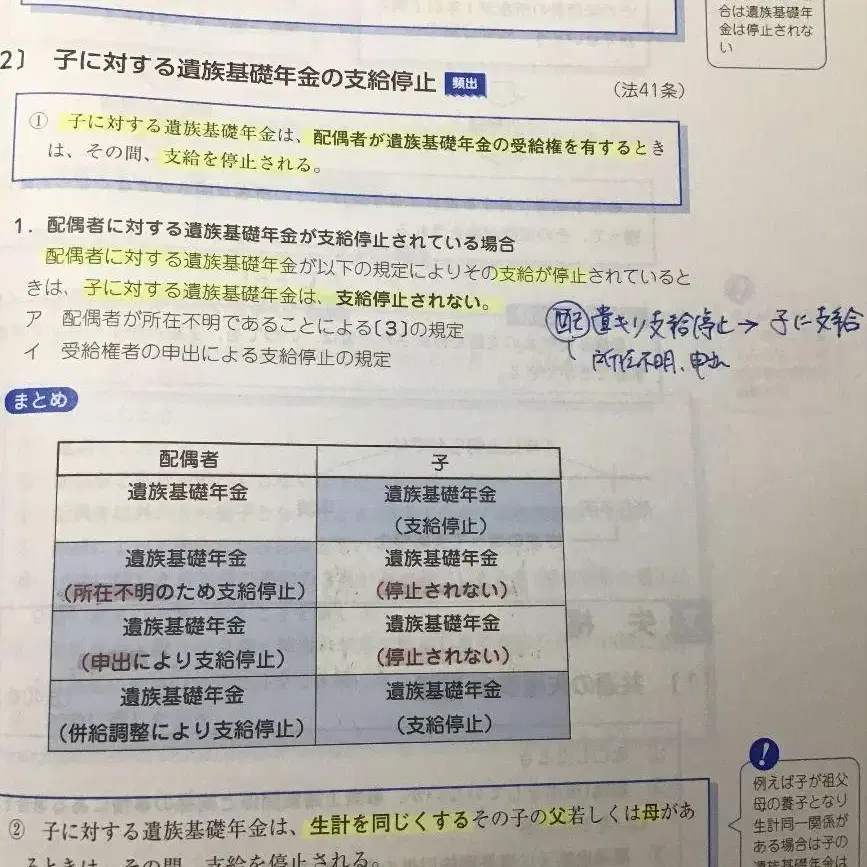 合は遺族基礎年
金は停止されな
い
2〕 子に対する遺族基礎年金の支給停止 頻出
(法41条)
① 子に対する遺族基礎年金は、配偶者が遺族基礎年金の受給権を有するとき
は、その間、支給を停止される。
1. 配偶者に対する遺族基礎年金が支給停止されている場合
配偶者に対する遺族基礎年金が以下の規定によりその支給が停止されていると
きは、子に対する遺族基礎年金は、支給停止されない。
ア 配偶者が所在不明であることによる〔3〕の規定
イ 受給権者の申出による支給停止の規定
配 遺キソ支給停止→子に支給
所在不明、申出
まとめ
配偶者 子
遺族基礎年金 遺族基礎年金
(支給停止)
遺族基礎年金 遺族基礎年金
(所在不明のため支給停止) (停止されない)
遺族基礎年金 遺族基礎年金
(申出により支給停止) (停止されない)
遺族基礎年金 遺族基礎年金
(併給調整により支給停止) (支給停止)
② 子に対する遺族基礎年金は、生計を同じくするその子の父若しくは母があ
るときは、その間、支給を停止される。
!
例えば子が祖父
母の養子となり
生計同一関係が
ある場合は子の
遺族基礎年金は